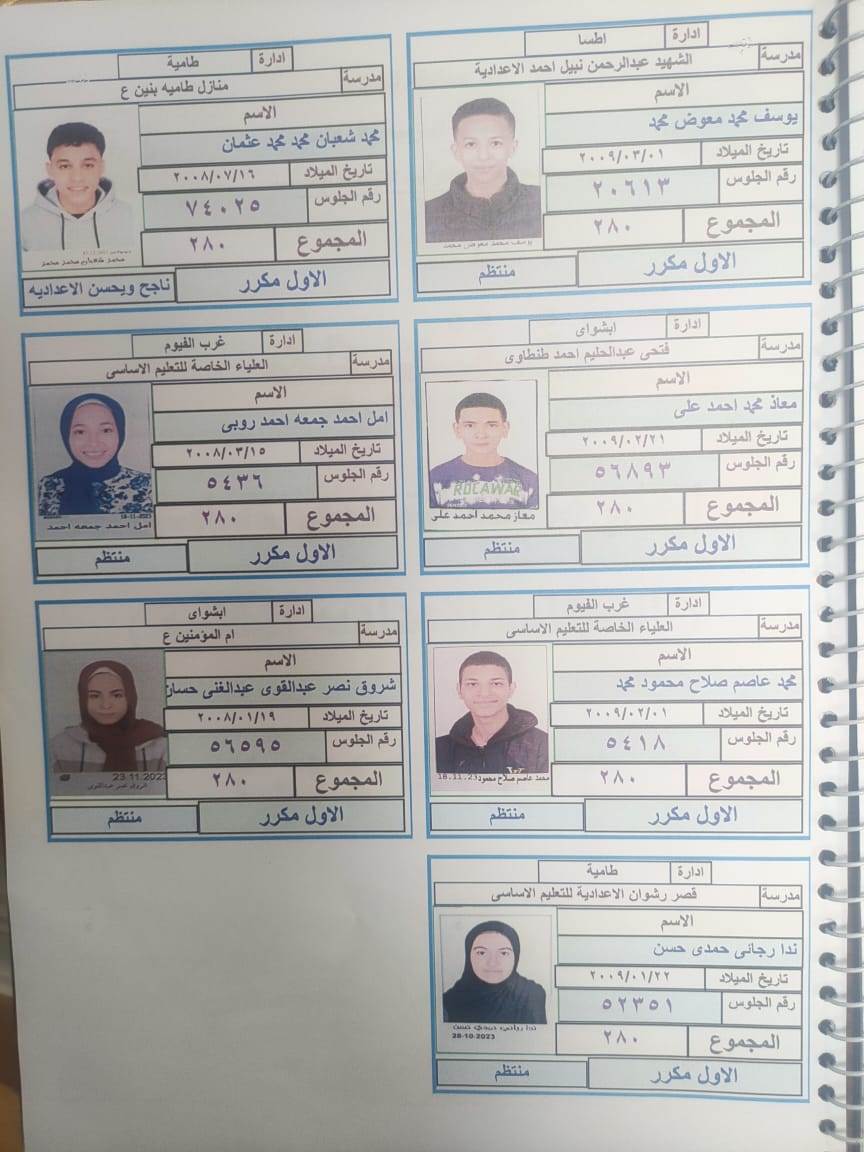 ادارة اطسا
مدرسة الشهيد عبدالرحمن نبيل احمد الاعدادية
الاسم
يوسف محمد معوض محمد
تاريخ الميلاد ٢٠٠٩/٠٣/٠١
رقم الجلوس ٢٠٦١٣
المجموع ٢٨٠
يوسف محمد معوض محمد
الاول مكرر منتظم
ادارة طامية
مدرسة منازل طاميه بنين ع
الاسم
محمد شعبان محمد محمد عثمان
تاريخ الميلاد ٢٠٠٨/٠٧/١٦
رقم الجلوس ٧٤٠٢٥
المجموع ٢٨٠
محمد شعبان محمد محمد
الاول مكرر ناجح ويحسن الاعداديه
ادارة ابشواى
مدرسة فتحى عبدالحليم احمد طنطاوى
الاسم
معاذ محمد احمد على
تاريخ الميلاد ٢٠٠٩/٠٢/٢١
رقم الجلوس ٥٦٨٩٣
ROCAWAR
المجموع ٢٨٠
معاز محمد أحمد على
الاول مكرر منتظم
ادارة غرب الفيوم
مدرسة العلياء الخاصة للتعليم الاساسى
الاسم
امل احمد جمعه احمد روبى
تاريخ الميلاد ٢٠٠٨/٠٣/١٥
رقم الجلوس ٥٤٣٦
المجموع ٢٨٠
18-11-2023
امل احمد جمعه احمد
الاول مكرر منتظم
ادارة غرب الفيوم
مدرسة العلياء الخاصة للتعليم الاساسى
الاسم
محمد عاصم صلاح محمود محمد
تاريخ الميلاد ٢٠٠٩/٠٢/٠١
رقم الجلوس ٥٤١٨
المجموع ٢٨٠
محمد عاصم صلاح محمود 18.11.23
الاول مكرر منتظم
ادارة ابشواى
مدرسة ام المؤمنين ع
الاسم
شروق نصر عبدالقوى عبدالغنى حسان
تاريخ الميلاد ٢٠٠٨/٠١/١٩
رقم الجلوس ٥٦٥٩٥
المجموع ٢٨٠
23.11.2023
الاول مكرر منتظم
ادارة طامية
مدرسة قصر رشوان الاعدادية للتعليم الاساسى
الاسم
ندا رجائى حمدى حسن
تاريخ الميلاد ٢٠٠٩/٠١/٢٢
رقم الجلوس ٥٢٣٥١
المجموع ٢٨٠
28-10-2023
الاول مكرر منتظم